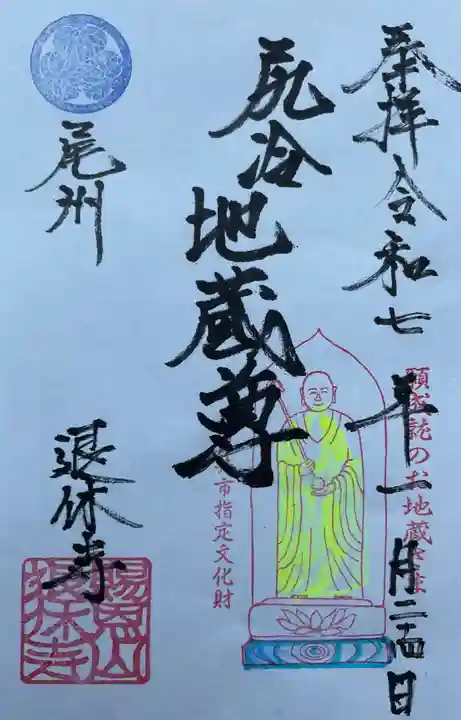 奉拝 令和七年一月二十四日
願成就のお地蔵さま
尻冷地蔵尊
市指定文化財
尾州
退休寺